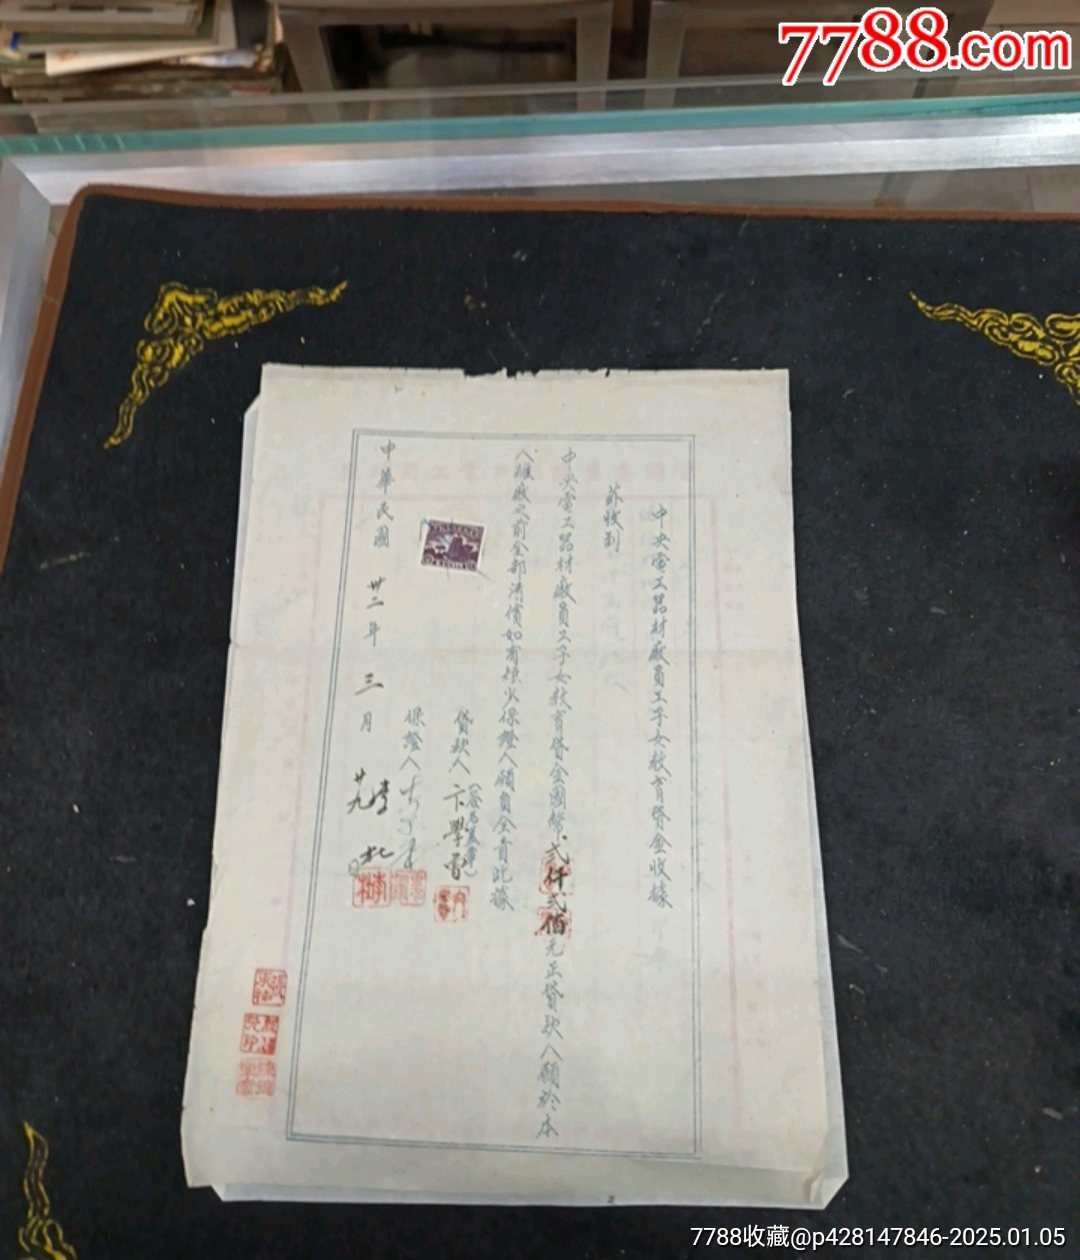 7788.com
中央電工器材廠員工子女教育貸金收據
茲收到
中央電工器材廠員工子女教育貸金國幣弍仟弍佰元正貸欵人願於本
人離廠之前全部清償如有缺少保證人願負全責此據
貸欵人 卞學
(簽名蓋章)
保證人 李
中華民國 卅二年 三月 廿九日
7788收藏@p428147846-2025.01.05